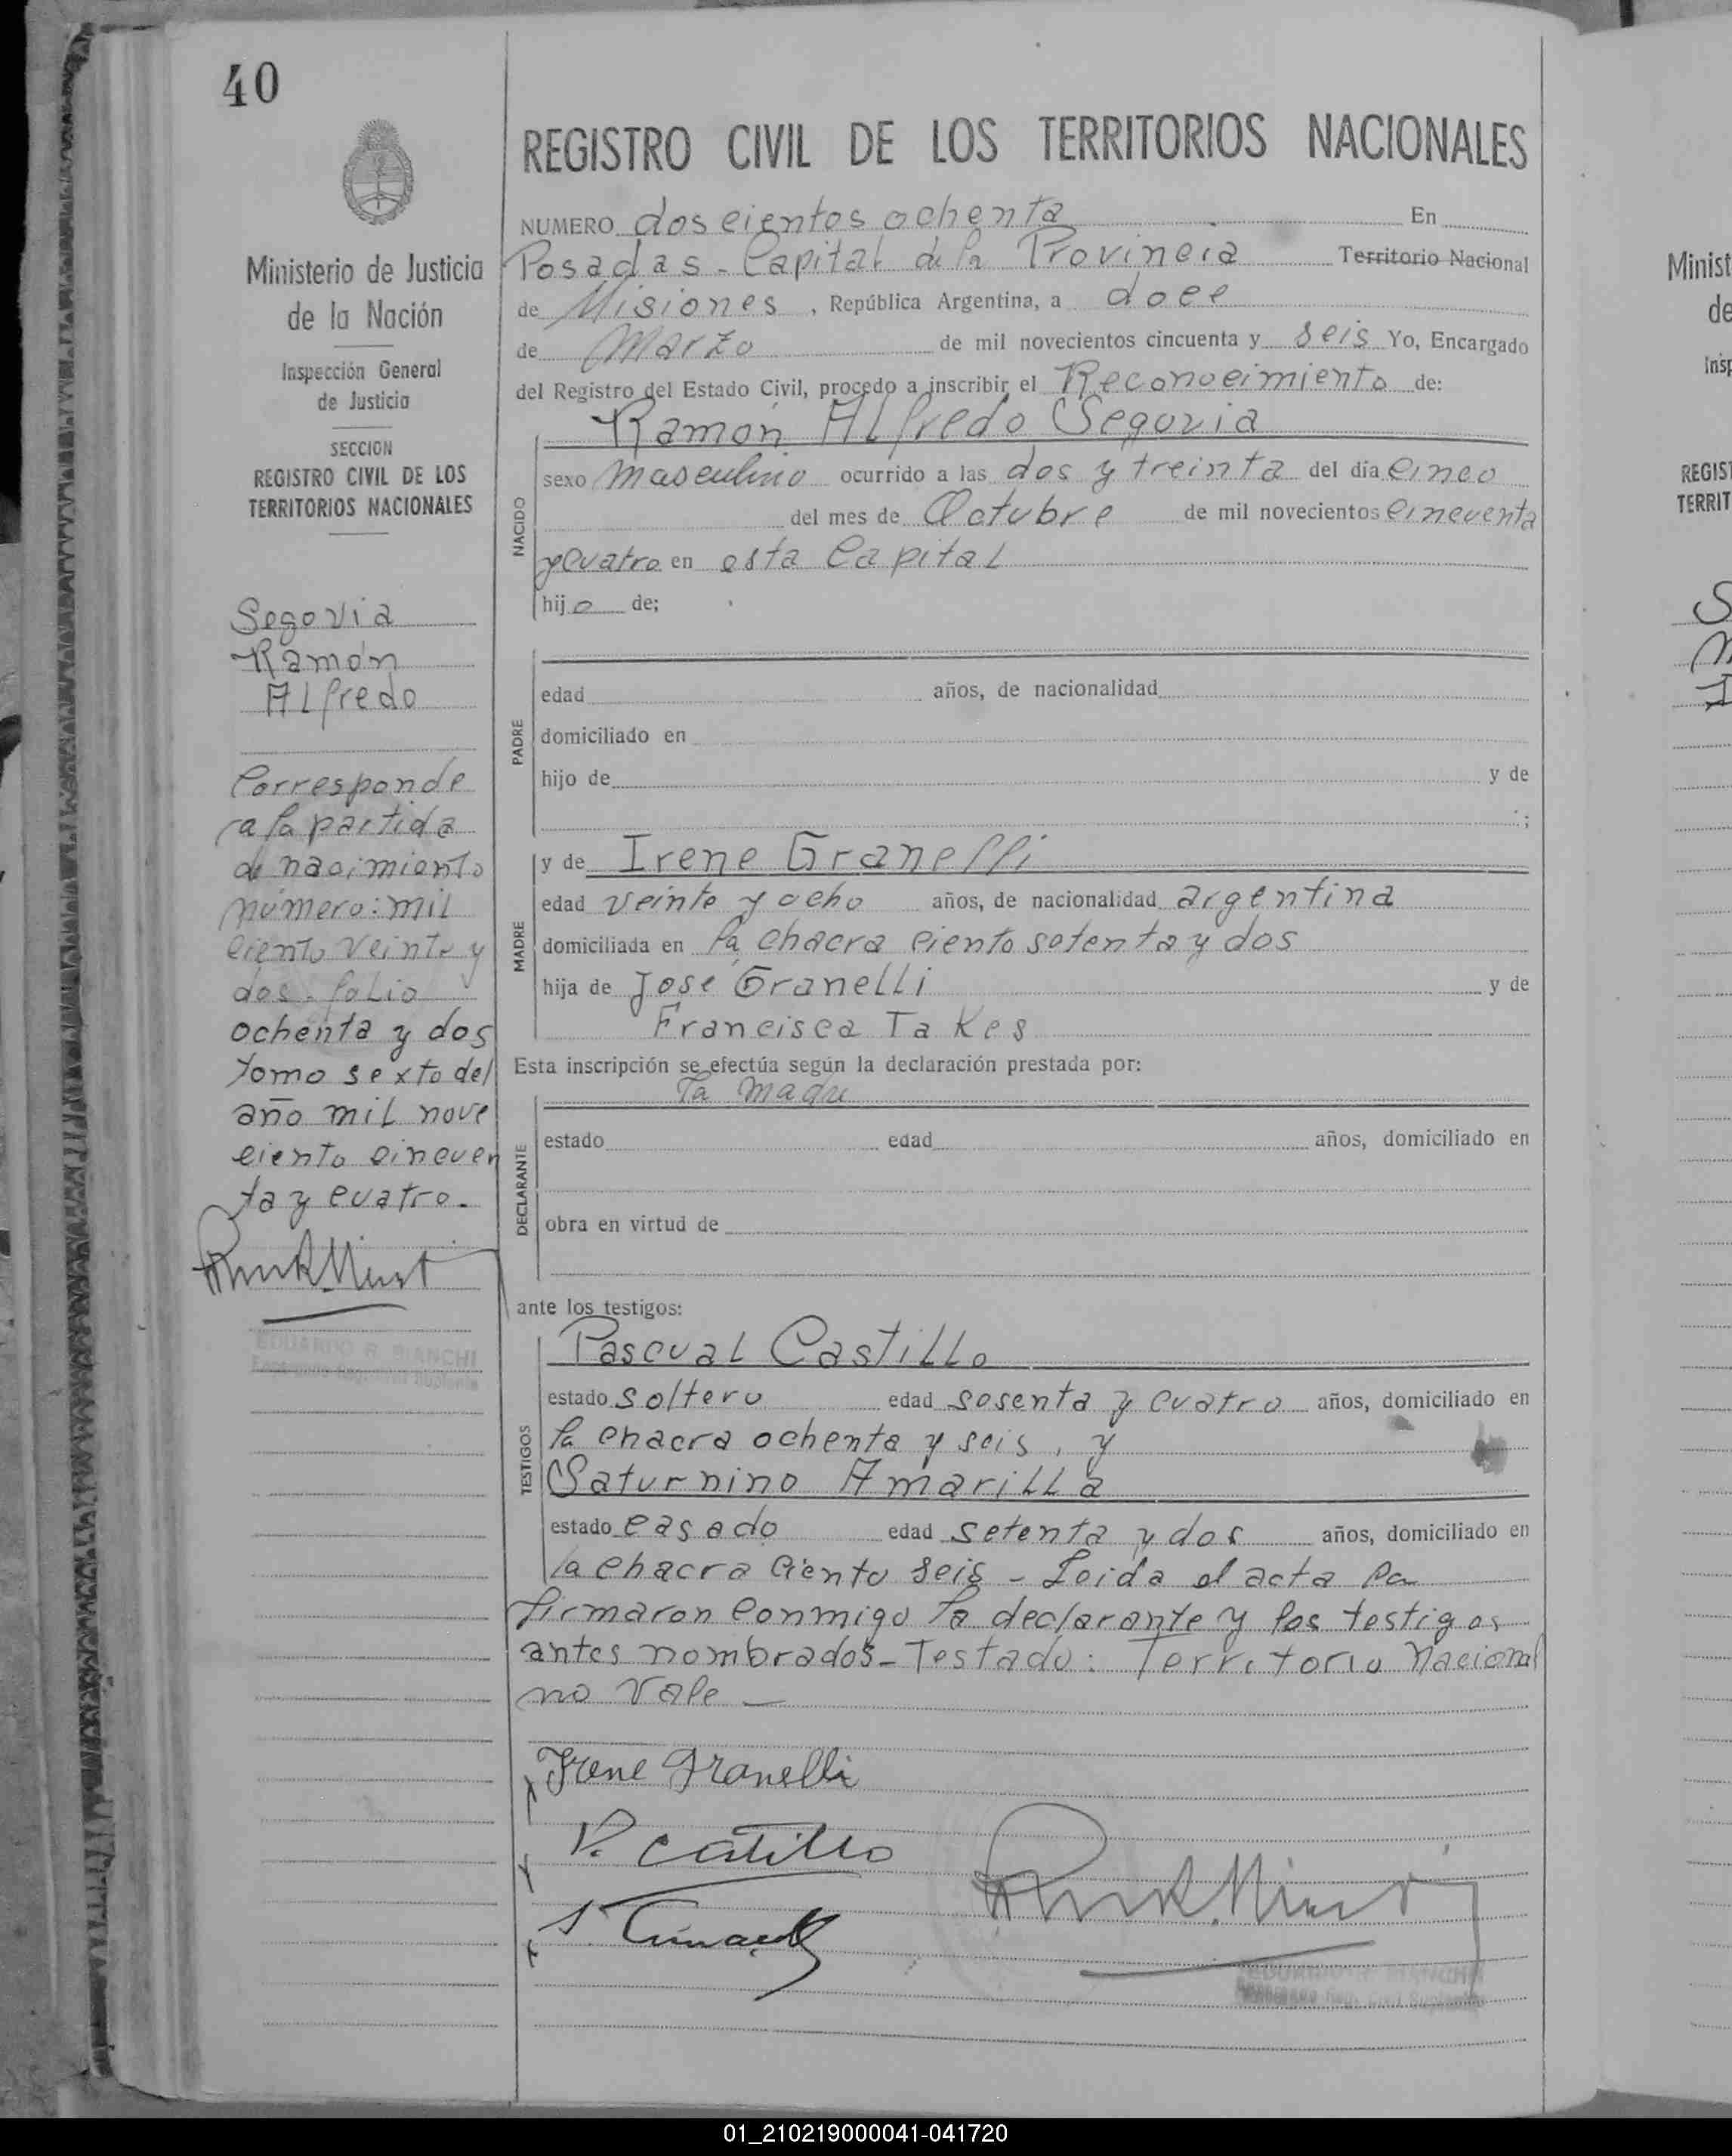 40
Ministerio de Justicia
de la Nación
Inspección General
de Justicia
SECCION
REGISTRO CIVIL DE LOS
TERRITORIOS NACIONALES
Segovia
Ramón
Alfredo
Corresponde
a la partida
de nacimiento
número: mil
ciento veinte y
dos. folio
ochenta y dos
tomo sexto del
año mil nove
ciento cincuen
ta y cuatro.
EDUARDO R. BIANCHI
REGISTRO CIVIL DE LOS TERRITORIOS NACIONALES
NUMERO doscientos ochenta En
Posadas - Capital de la Provincia Territorio Nacional
de Misiones, República Argentina, a doce
de Marzo de mil novecientos cincuenta y seis Yo, Encargado
del Registro del Estado Civil, procedo a inscribir el Reconocimiento de:
Ramón Alfredo Segovia
NACIDO
sexo masculino ocurrido a las dos y treinta del día cinco
del mes de Octubre de mil novecientos cincuenta
y cuatro en esta Capital
hijo de;
PADRE
edad años, de nacionalidad
domiciliado en
hijo de y de
;
MADRE
y de Irene Granelli
edad veinte y ocho años, de nacionalidad argentina
domiciliada en la chacra ciento setenta y dos
hija de José Granelli y de
Francisca Takes
Esta inscripción se efectúa según la declaración prestada por:
la madre
DECLARANTE
estado edad años, domiciliado en
obra en virtud de
ante los testigos:
TESTIGOS
Pascual Castillo
estado soltero edad sesenta y cuatro años, domiciliado en
la chacra ochenta y seis, y
Saturnino Amarilla
estado casado edad setenta y dos años, domiciliado en
la chacra ciento seis - Leida el acta la
firmaron conmigo la declarante y los testigos
antes nombrados - Testado: Territorio Nacional
no vale -
Irene Granelli
P. Castillo
EDUARDO R. BIANCHI
Minist
de
Insp
REGIST
TERRIT
01_210219000041-041720